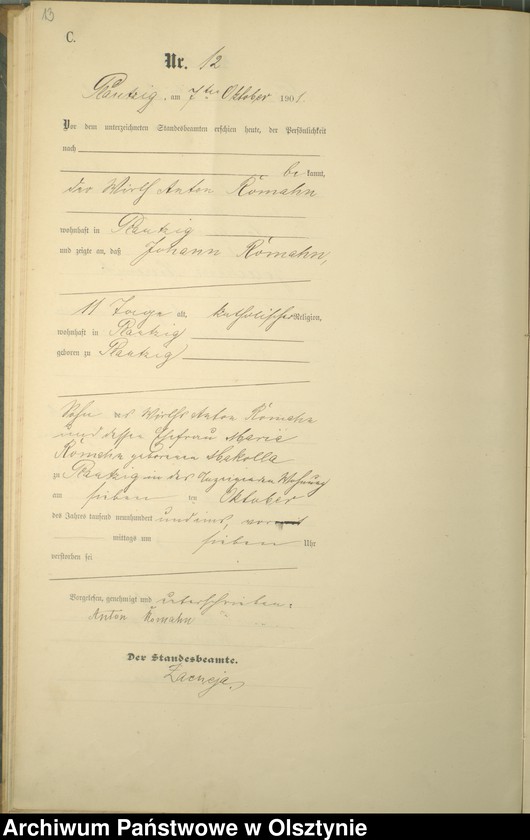 13
C.
Nr. 12
Plautzig, am 7ten Oktober 1901
Vor dem unterzeichneten Standesbeamten erschien heute, der Persönlichkeit
nach
be kannt,
der Wirth Anton Romahn
wohnhaft in Plautzig
und zeigte an, daß Johann Romahn,
11 Tage alt, katholischer Religion,
wohnhaft in Plautzig
geboren zu Plautzig
Sohn des Wirths Anton Romahn
und dessen Ehefrau Marie
Romahn geborenen Makolla
zu Plautzig in der Wohnung
am sieben ten Oktober
des Jahres tausend neunhundert und eins, vor
mittags um sieben Uhr
verstorben sei
Vorgelesen, genehmigt und unterschrieben:
Anton Romahn
Der Standesbeamte.
Archiwum Państwowe w Olsztynie